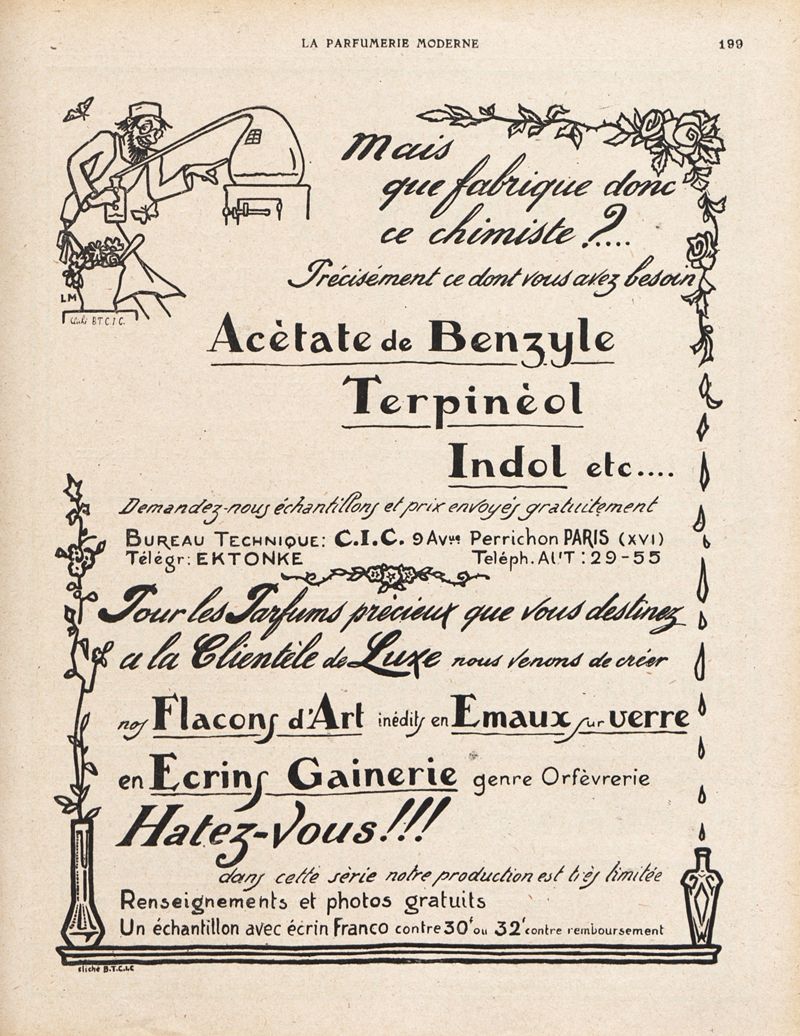 LA PARFUMERIE MODERNE
199
Mais
que fabrique donc
ce chimiste ?....
Précisément ce dont vous avez besoin
LM
Cliché B.T.C.I.C.
Acètate de Benzyle
Terpinèol
Indol etc....
Demandez-nous échantillons et prix envoyés gratuitement
BUREAU TECHNIQUE: C.I.C. 9 Avue Perrichon PARIS (XVI)
Télégr: EKTONKE Teléph. AUT: 29-55
Pour les Parfums précieux que vous destinez
a la Clientèle de Luxe nous venons de créer
nos Flacons d'Art inédits en Emaux sur verre
en Ecrins Gainerie genre Orfèvrerie
Hatez-Vous!!!
dans cette série notre production est très limitée
Renseignements et photos gratuits
Un échantillon avec écrin Franco contre 30f ou 32f contre remboursement
cliché B.T.C.I.C